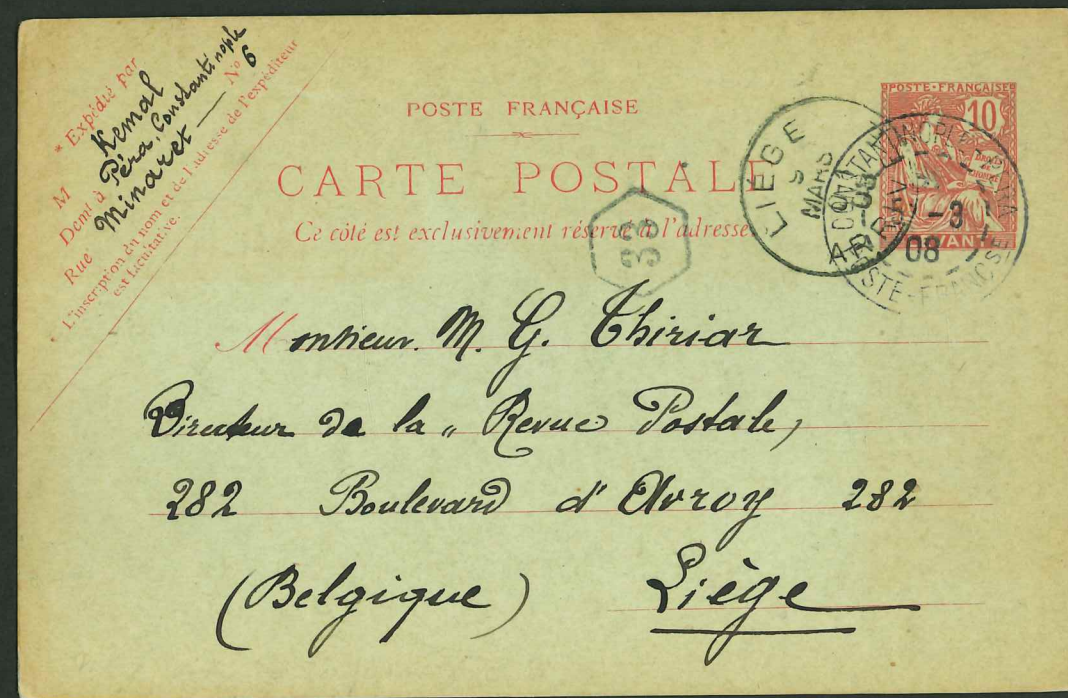 * Expédié par
M Kemal
Demt à Péra, Constantinople
Rue Minaret — No 6
L'inscription du nom et de l'adresse de l'expéditeur
est facultative.
POSTE FRANÇAISE
CARTE POSTALE
Ce côté est exclusivement réservé à l'adresse.
POSTE FRANÇAISE
10
LIEGE
5
MARS
AR
CONSTANTINOPLE
-3
08
POSTE-FRANÇSE
33
Monsieur M. G. Thiriar
Directeur de la „ Revue Postale,
282 Boulevard d'Avroy 282
(Belgique) Liège